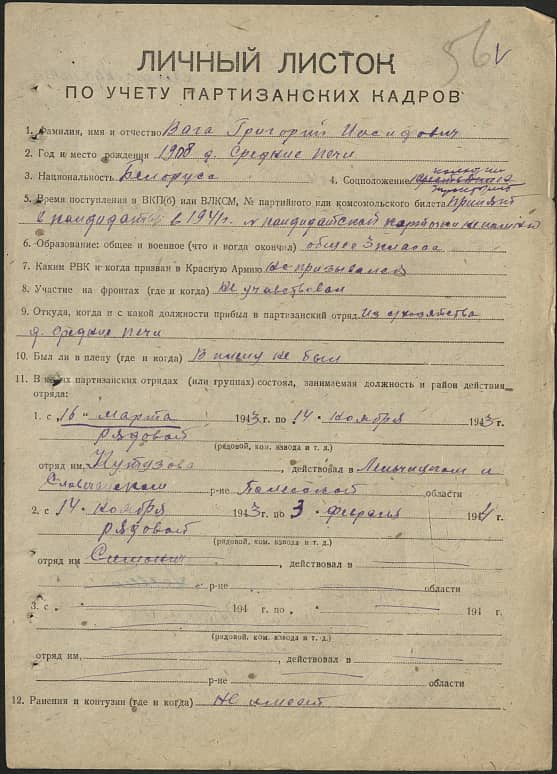 56 V
ЛИЧНЫЙ ЛИСТОК
ПО УЧЕТУ ПАРТИЗАНСКИХ КАДРОВ
1. Фамилия, имя и отчество Вага Григорий Иосидович
2. Год и место рождения 1908 д. Средние печи
3. Национальность Белорусс 4. Соцположение
5. Время поступления в ВКП(б) или ВЛКСМ, № партийного или комсомольского билета принят
в кандидаты в 1941г. № кандидатской карточки не помнит
6. Образование: общее и военное (что и когда окончил) общее 3 класса
7. Каким РВК и когда призван в Красную Армию Не призывался
8. Участие на фронтах (где и когда) Не участвовал
9. Откуда, когда и с какой должности прибыл в партизанский отряд Из
д. Средние печи
10. Был ли в плену (где и когда) В плену не был
11. В каких партизанских отрядах (или группах) состоял, занимаемая должность и район действия
отряда:
1. с 16 - марта 1943 г. по 14 - ноября 1943 г.
рядовой
(рядовой, ком. взвода и т. д.)
отряд им. Кутузова, действовал в Лельчицком и
Словечанском р-не Полесской области
2. с 14 - ноября 1943 г. по 3 - февраля 1944 г.
рядовой
(рядовой, ком. взвода и т. д.)
отряд им , действовал в
р-не области
3. с 194 г. по 194 г.
(рядовой, ком. взвода и т. д.)
отряд им. , действовал в
р-не области
12. Ранения и контузии (где и когда) Не имеет